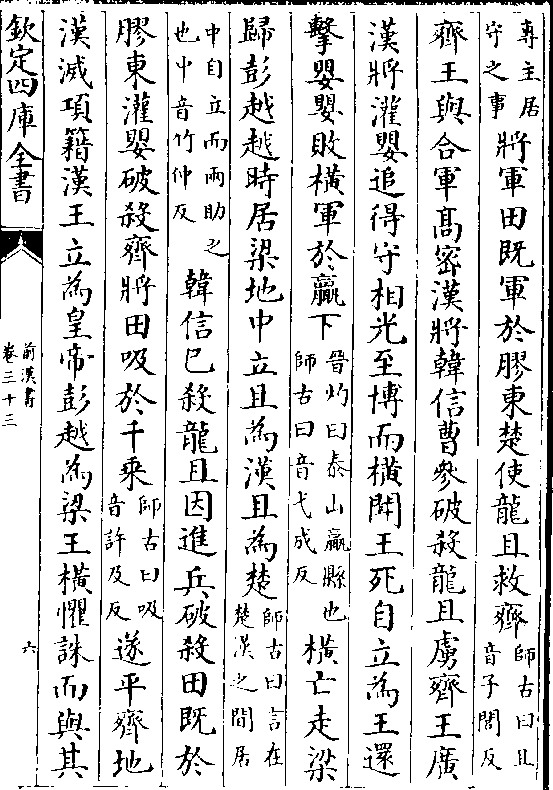 專主居守之事將軍田既軍於膠東楚使龍且救齊師古曰且音子閭反
齊王與合軍髙密漢將韓信曹參破殺龍且虜齊王廣
漢將灌嬰追得守相光至博而橫聞王死自立為王還
擊嬰嬰敗橫軍於嬴下晉灼曰泰山嬴縣也師古曰音弋成反橫亡走梁
歸彭越越時居梁地中立且為漢且為楚師古曰言在楚漢之間居
中自立而兩助之也中音竹仲反韓信已殺龍且因進兵破殺田既於
膠東灌嬰破殺齊將田吸於千乘師古曰吸音許及反遂平齊地
漢滅項籍漢王立為皇帝彭越為梁王橫懼誅而與其
欽定四庫全書
前漢書
卷三十三
六